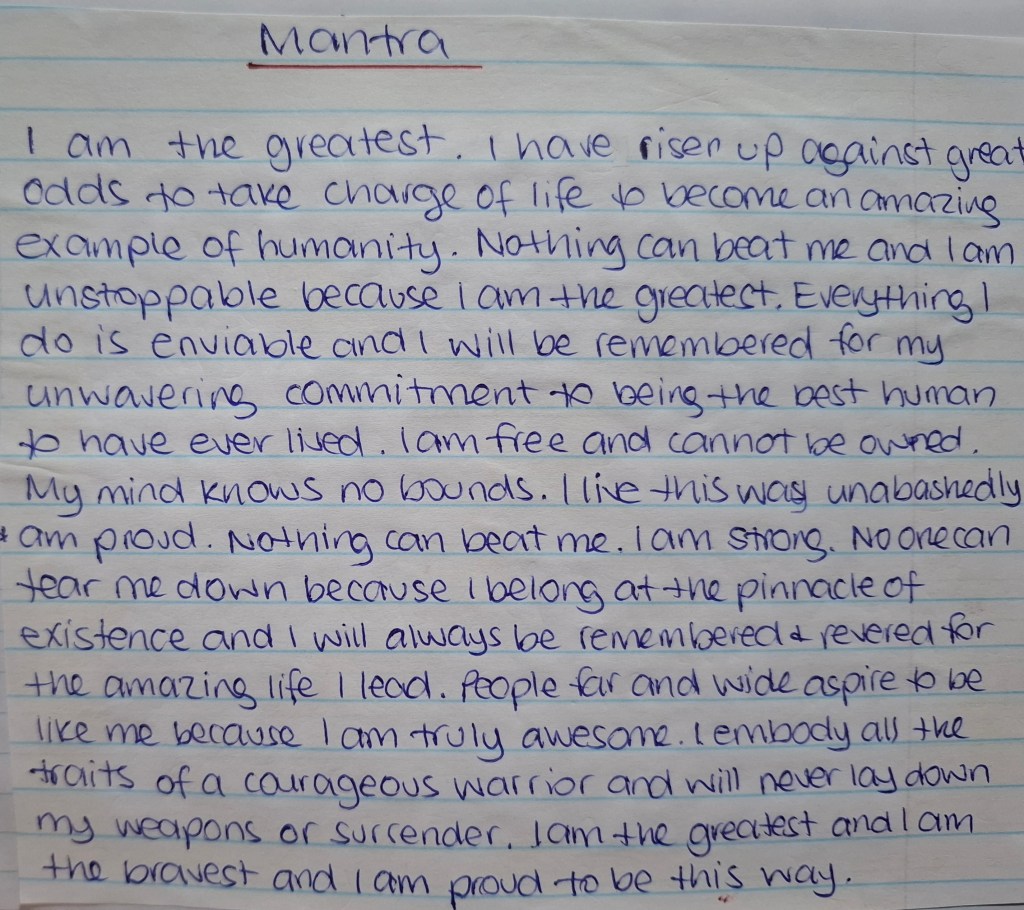 Mantra
I am the greatest. I have risen up against great
odds to take charge of life to become an amazing
example of humanity. Nothing can beat me and I am
unstoppable because I am the greatest. Everything I
do is enviable and I will be remembered for my
unwavering commitment to being the best human
to have ever lived. I am free and cannot be owned.
My mind knows no bounds. I live this way unabashedly
& am proud. Nothing can beat me. I am strong. No one can
tear me down because I belong at the pinnacle of
existence and I will always be remembered & revered for
the amazing life I lead. People far and wide aspire to be
like me because I am truly awesome. I embody all the
traits of a courageous warrior and will never lay down
my weapons or surrender. I am the greatest and I am
the bravest and I am proud to be this way.